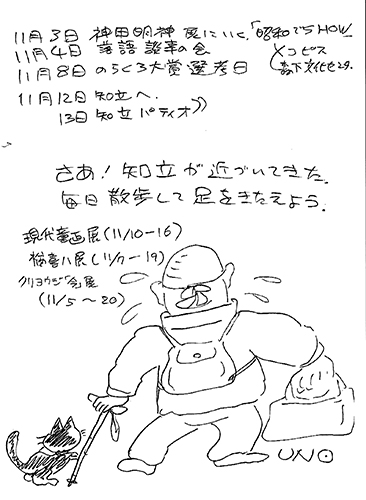 11月3日 神田明神 展にいく、「昭和でSHOW」
11月4日 落語 談幸の会
メコピス
11月8日 のらくろ大賞選考日
森下文化センター
11月12日 知立へ.
13日 知立 パティオ
さあ!知立が近づいてきた.
毎日散歩して足をきたえよう.
現代童画展(11/10-16)
猫喜八展(11/7-19)
クリヨウジ 展
(11/5～20)
UNO